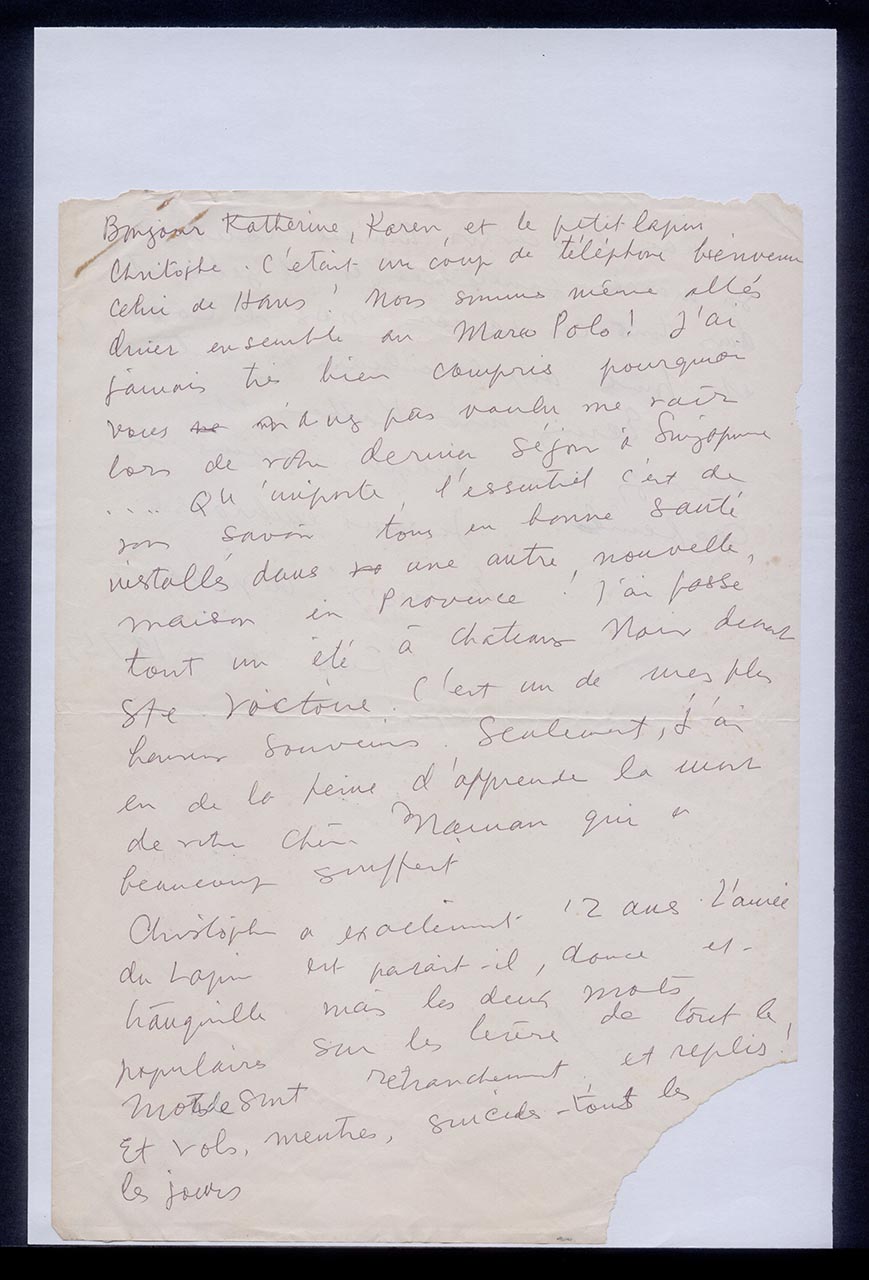 Bonjour Katherine, Karen et le petit lapin
Christophe. C'était un coup de téléphone bienvenu
celui de Hans! Nous sommes même allés
diner ensemble au Marco Polo! J'ai
jamais très bien compris pourquoi
vous ne m'avez pas voulu me voir
lors de votre dernier séjour à Singapour
.... Qu'importe, l'essentiel c'est de
vous savoir tous en bonne santé
installés dans une autre, nouvelle,
maison en Provence! J'ai passé
tout un été à Chateau Noir devant
Ste Victoire. C'est un de mes plus
heureux souvenirs. Seulement, j'ai
eu de la peine d'apprendre la mort
de votre chère Maman qui a
beaucoup souffert
Christophe a exactement 12 ans. L'année
du Lapin est parait-il, douce et
tranquille mais les deux mots
populaires sur les lèvres de tout le
monde sont retranchement et replis!
Et vols, meutres, suicides - tous les
les jours